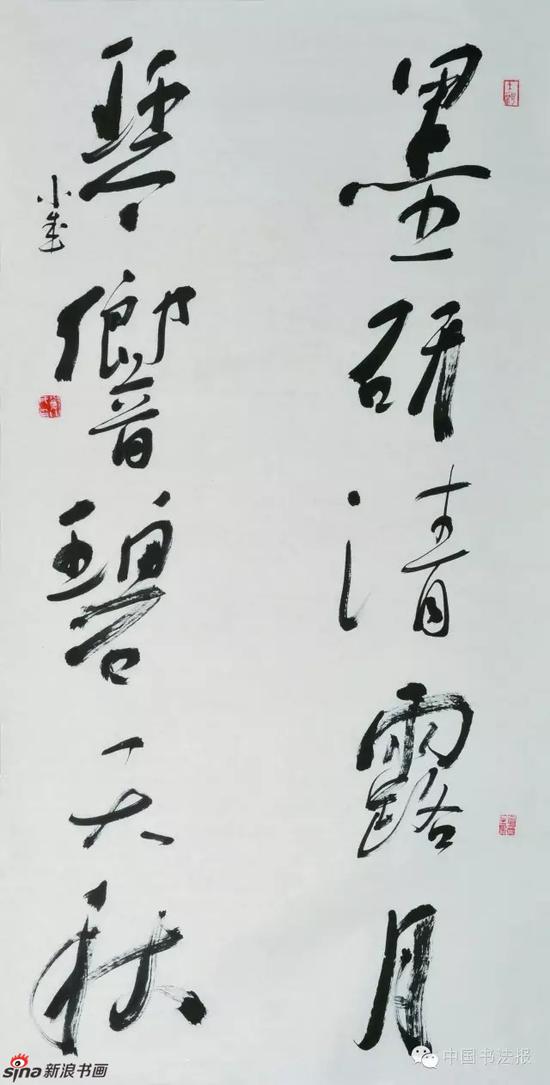 墨研清露月
琴響碧天秋
小成
sina新浪书画
中国书法报